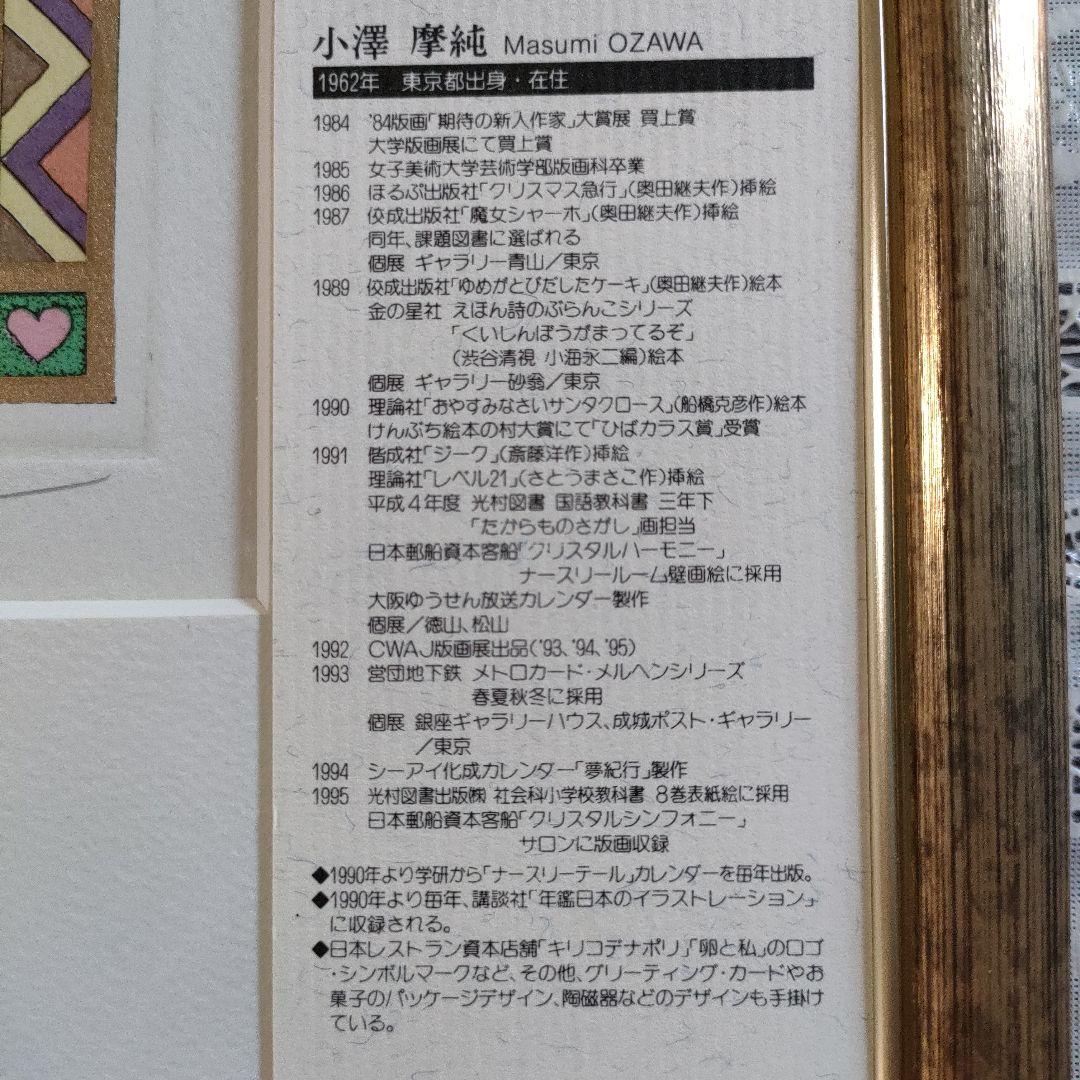 小澤 摩純 Masumi OZAWA
1962年 東京都出身・在住
1984 '84版画「期待の新人作家」大賞展 買上賞
大学版画展にて買上賞
1985 女子美術大学芸術学部版画科卒業
1986 ほるぷ出版社「クリスマス急行」(奥田継夫作)挿絵
1987 佼成出版社「魔女シャーホ」(奥田継夫作)挿絵
同年、課題図書に選ばれる
個展 ギャラリー青山/東京
1989 佼成出版社「ゆめがとびだしたケーキ」(奥田継夫作)絵本
金の星社 えほん詩のぶらんこシリーズ
「くいしんぼうがまってるぞ」
(渋谷清視 小海永二編)絵本
個展 ギャラリー砂翁/東京
1990 理論社「おやすみなさいサンタクロース」(船橋克彦作)絵本
けんぶち絵本の村大賞にて「ひばカラス賞」受賞
1991 偕成社「ジーク」(斎藤洋作)挿絵
理論社「レベル21」(さとうまさこ作)挿絵
平成4年度 光村図書 国語教科書 三年下
「たからものさがし」画担当
日本郵船資本客船「クリスタルハーモニー」
ナースリールーム壁画絵に採用
大阪ゆうせん放送カレンダー製作
個展/徳山、松山
1992 CWAJ版画展出品('93、'94、'95)
1993 営団地下鉄 メトロカード・メルヘンシリーズ
春夏秋冬に採用
個展 銀座ギャラリーハウス、成城ポスト・ギャラリー
/東京
1994 シーアイ化成カレンダー「夢紀行」製作
1995 光村図書出版㈱ 社会科小学校教科書 8巻表紙絵に採用
日本郵船資本客船「クリスタルシンフォニー」
サロンに版画収録
◆1990年より学研から「ナースリーテール」カレンダーを毎年出版。
◆1990年より毎年、講談社「年鑑日本のイラストレーション」
に収録される。
◆日本レストラン資本店舗「キリコデナポリ」「卵と私」のロゴ
・シンボルマークなど、その他、グリーティング・カードやお
菓子のパッケージデザイン、陶磁器などのデザインも手掛け
ている。